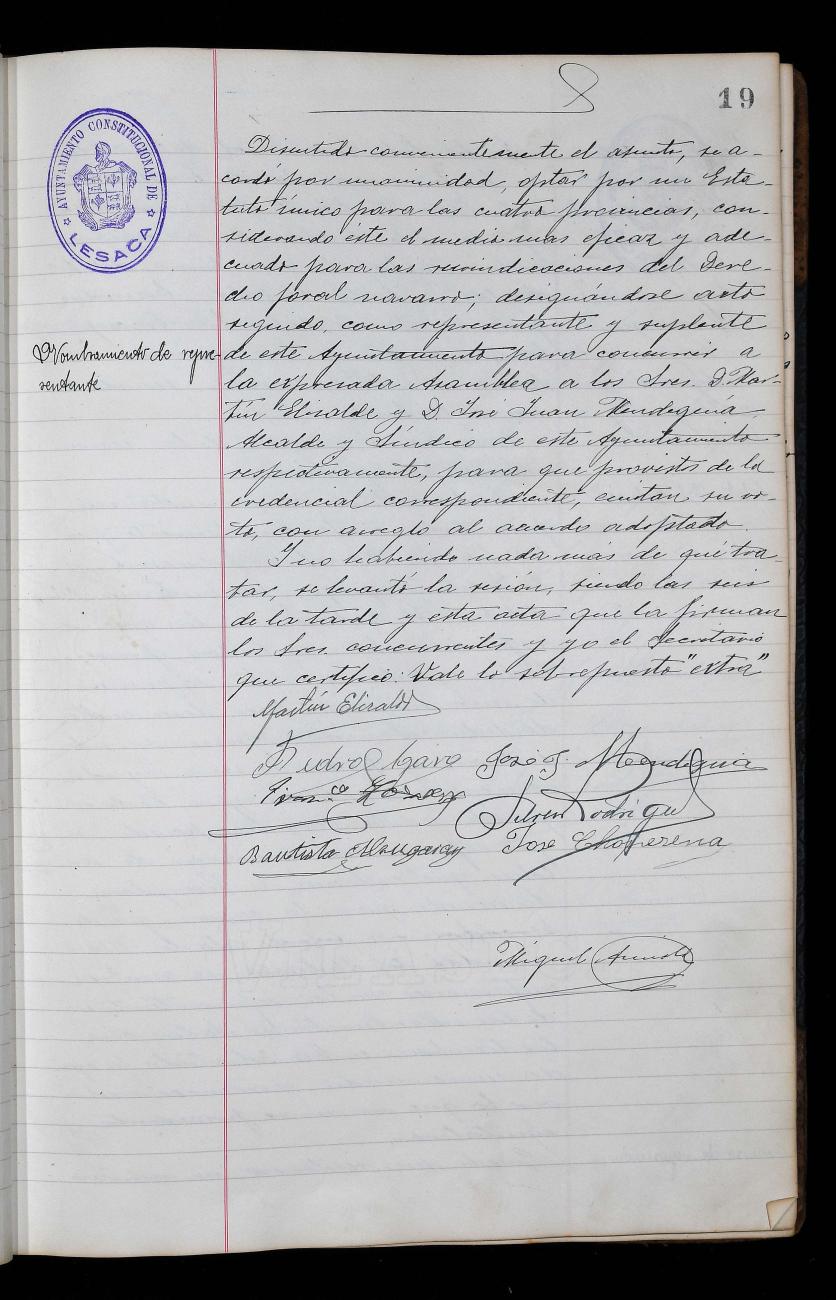 19
AYUNTAMIENTO CONSTITUCIONAL DE
LESACA
Discutido convenientemente el asunto, se a-
cordó por unanimidad, optar por un Esta-
tuto único para las cuatro provincias, con-
siderando éste el medio mas eficaz y ade-
cuado para las reivindicaciones del Dere-
cho foral navarro; designándose acto
seguido, como representante y suplente
Nombramiento de repre-
sentante
de este Ayuntamiento para concurrir a
la expresada Asamblea a los Sres. D. Mar-
tín Elizalde y D. José Juan Mendeguía
Alcalde y Síndico de este Ayuntamiento
respectivamente, para que provistos de la
credencial correspondiente, emitan su vo-
to, con arreglo al acuerdo adoptado.
Y no habiendo nada más de qué tra-
tar, se levantó la sesión, siendo las seis
de la tarde y esta acta que la firman
los Sres. concurrentes y yo el Secretario
que certifico: Vale lo sobrepuesto "extra"
Martín Elizalde
Pedro José J. Mendeguia
Rodriguez
Bautista José Choperena
Miguel